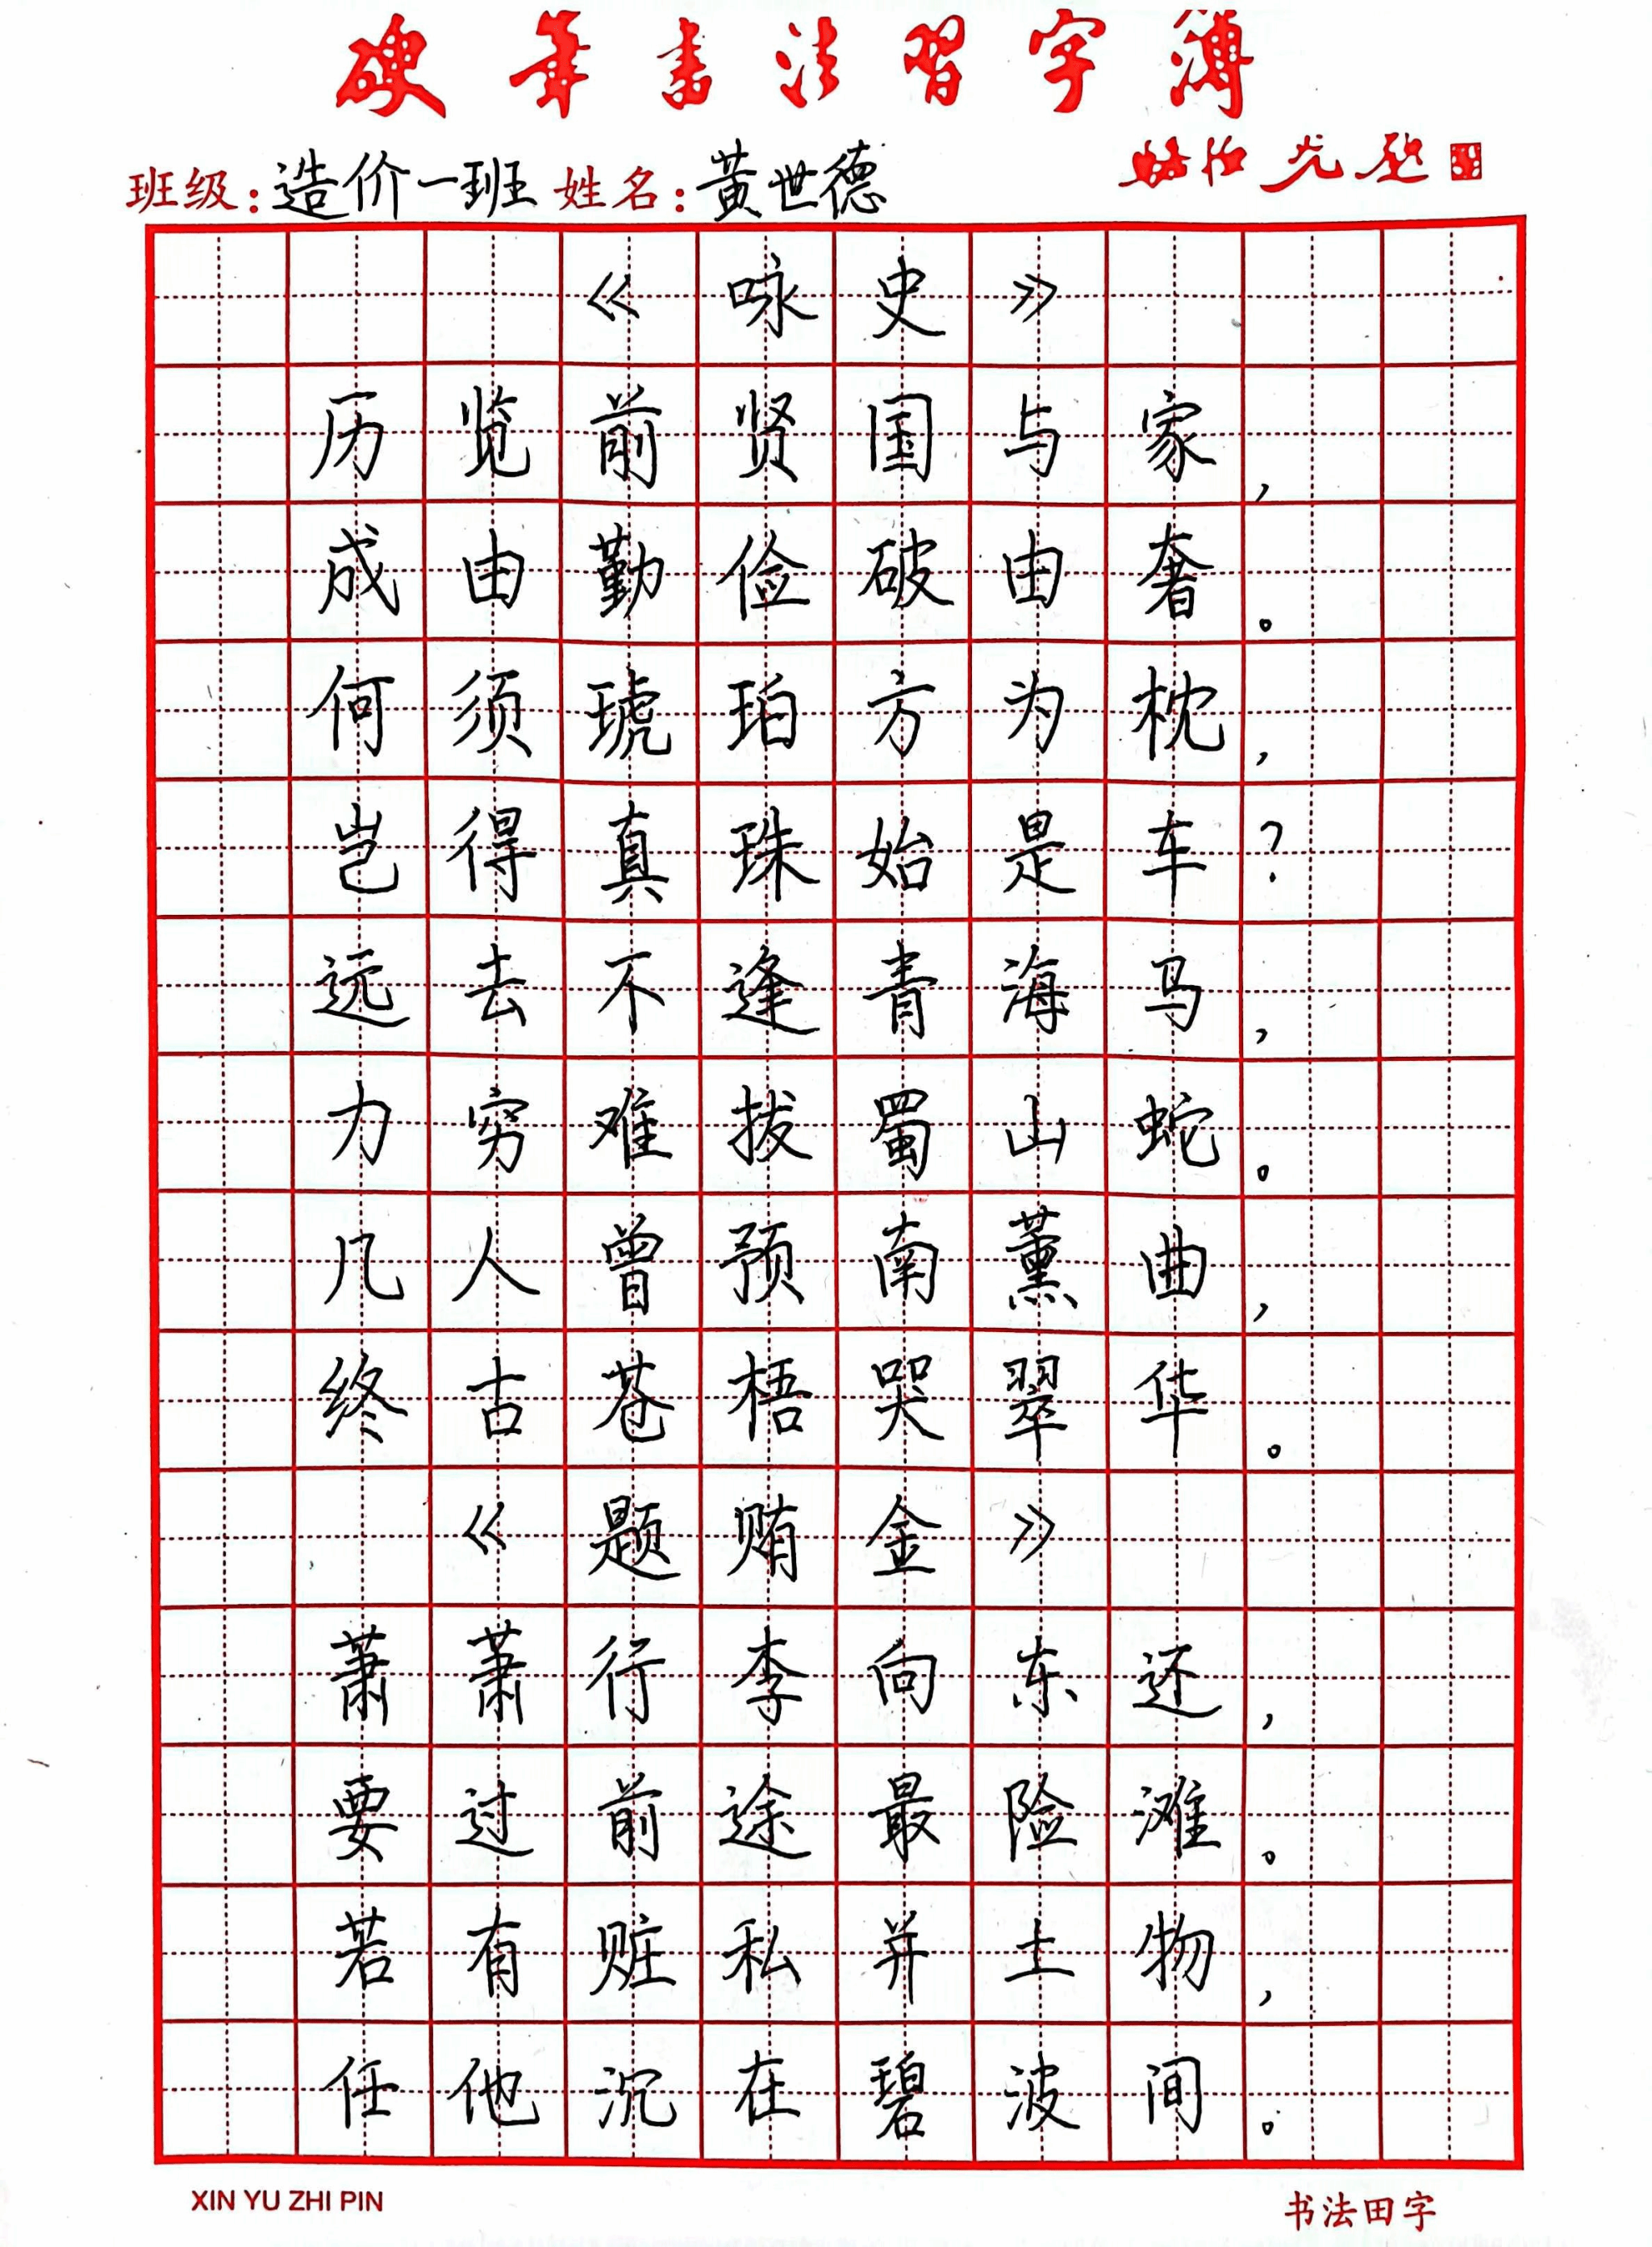 硬笔书法習字簿
班级：造价一班 姓名：黄世德
《咏史》
历览前贤国与家，
成由勤俭破由奢。
何须琥珀方为枕，
岂得真珠始是车？
远去不逢青海马，
力穷难拔蜀山蛇。
几人曾预南薰曲，
终古苍梧哭翠华。
《题贿金》
萧萧行李向东还，
要过前途最险滩。
若有赃私并土物，
任他沉在碧波间。
XIN YU ZHI PIN 书法田字